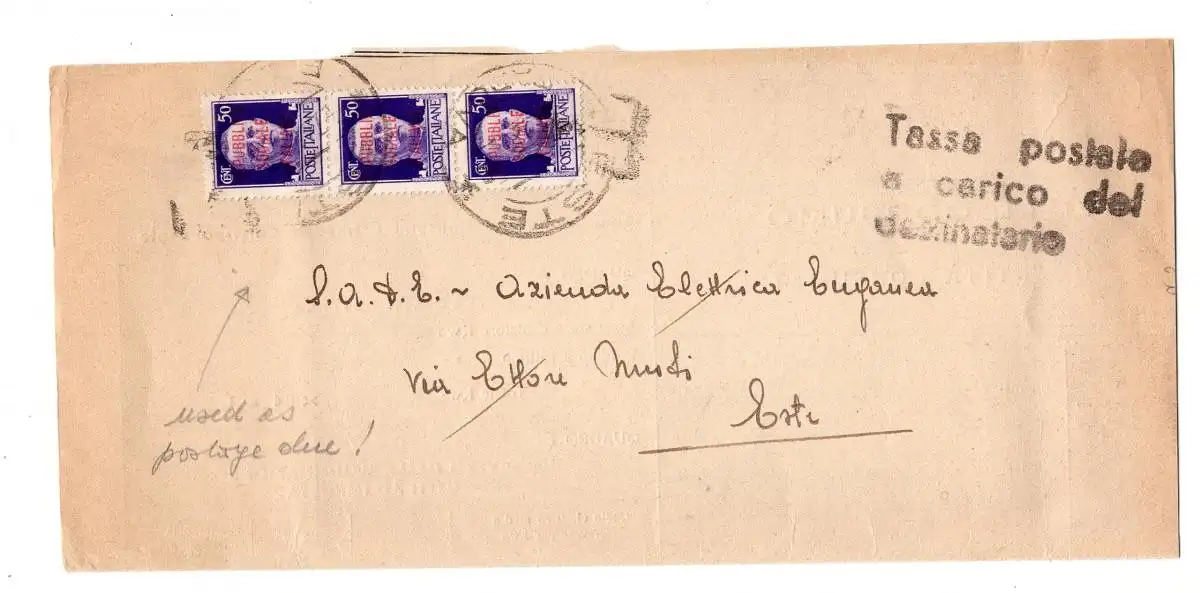 50 CENT. POSTE ITALIANE REPUBBLICA SOCIALE ITALIANA
50 CENT. POSTE ITALIANE REPUBBLICA SOCIALE ITALIANA
50 CENT. POSTE ITALIANE REPUBBLICA SOCIALE ITALIANA
ESTE
T
Tassa postale
a carico del
destinatario
S.A.D.E. ~ Azienda Elettrica Euganea
Via Ettore Muti
Este
used as
postage due!